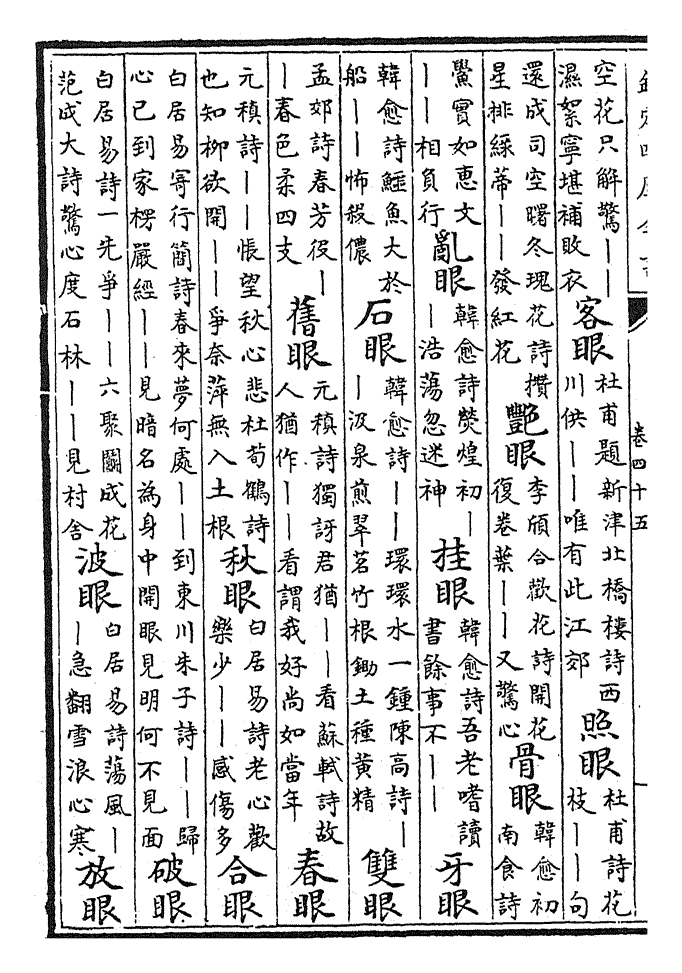 欽定四庫全書
卷四十五
空花只解驚——
濕絮寧堪補敗衣
客眼
杜甫題新津北橋樓詩西
川供——唯有此江郊
照眼
杜甫詩花
枝——句
還成司空曙冬瑰花詩攢
星排綵蒂——發紅花
豔眼
李頎合歡花詩開花
復卷葉——又驚心
骨眼
韓愈初
南食詩
鱟實如惠文
——相負行
亂眼
韓愈詩熒煌初—
—浩蕩忽迷神
挂眼
韓愈詩吾老嗜讀
書餘事不——
牙眼
韓愈詩鱷魚大於
船——怖殺儂
石眼
韓愈詩——環環水一鍾陳高詩—
—汲泉煎翠茗竹根鋤土種黃精
雙眼
孟郊詩春芳役—
—春色柔四支
舊眼
元稹詩獨訝君猶——看蘇軾詩故
人猶作——看謂我好尚如當年
春眼
元稹詩——悵望秋心悲杜荀鶴詩
也知柳欲開——爭奈萍無入土根
秋眼
白居易詩老心歡
樂少——感傷多
合眼
白居易寄行簡詩春來夢何處——到東川朱子詩——歸
心已到家楞嚴經——見暗名為身中開眼見明何不見面
破眼
白居易詩一先爭——六聚鬭成花
范成大詩驚心度石林——見村舍
波眼
白居易詩蕩風—
—急翻雪浪心寒
放眼